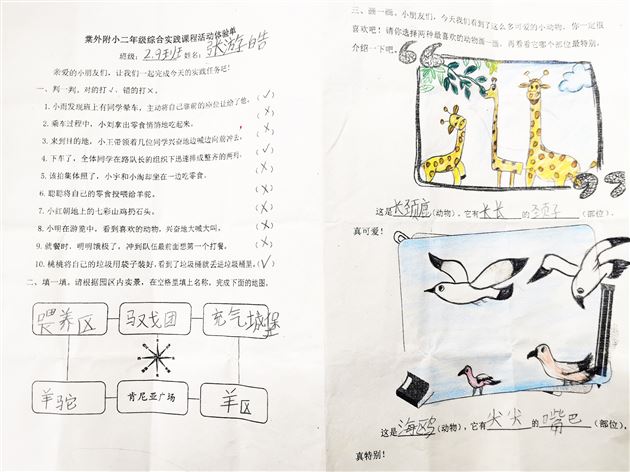 棠外附小二年级综合实践课程活动体验单
班级：2.9班 姓名：张游皓
亲爱的小朋友们，让我们一起完成今天的实践任务吧！
一、判一判。对的打√、错的打×。
1. 小雨发现班上有同学晕车，主动将自己靠前的座位让给了他。（√）
2. 乘车过程中，小刘拿出零食悄悄地吃起来。（×）
3. 来到目的地，小王带领着几位同学兴奋地边喊边向前冲去。（×）
4. 下车了，全体同学在路队长的组织下迅速排成整齐的两列。（√）
5. 该拍集体照了，小宇和小海却坐在一边吃零食。（×）
6. 聪聪将自己的零食投喂给羊驼。（×）
7. 小红朝地上的七彩山鸡扔石头。（×）
8. 小明在游览中，看到喜欢的动物，兴奋地大喊大叫。（×）
9. 就餐时，明明饿极了，冲到队伍最前面想第一个打餐。（×）
10. 桃桃将自己的垃圾用袋子装好，看到了垃圾桶就丢进垃圾桶里。（√）
二、填一填。请根据园区内实景，在空格里填上名称，完成下面的地图。
喂养区 马戏团 充气城堡
羊驼 肯尼亚广场 羊区
三、画一画。小朋友们，今天我们看到了这么多可爱的小动物，你一定很
喜欢吧！请你选择两种最喜欢的动物画一画，再看看它哪个部位最特别，
介绍一下吧。
这是长颈鹿（动物），它有长长的颈子（部位）。
真可爱！
这是海鸥（动物），它有尖尖的嘴巴（部位）。
真特别！